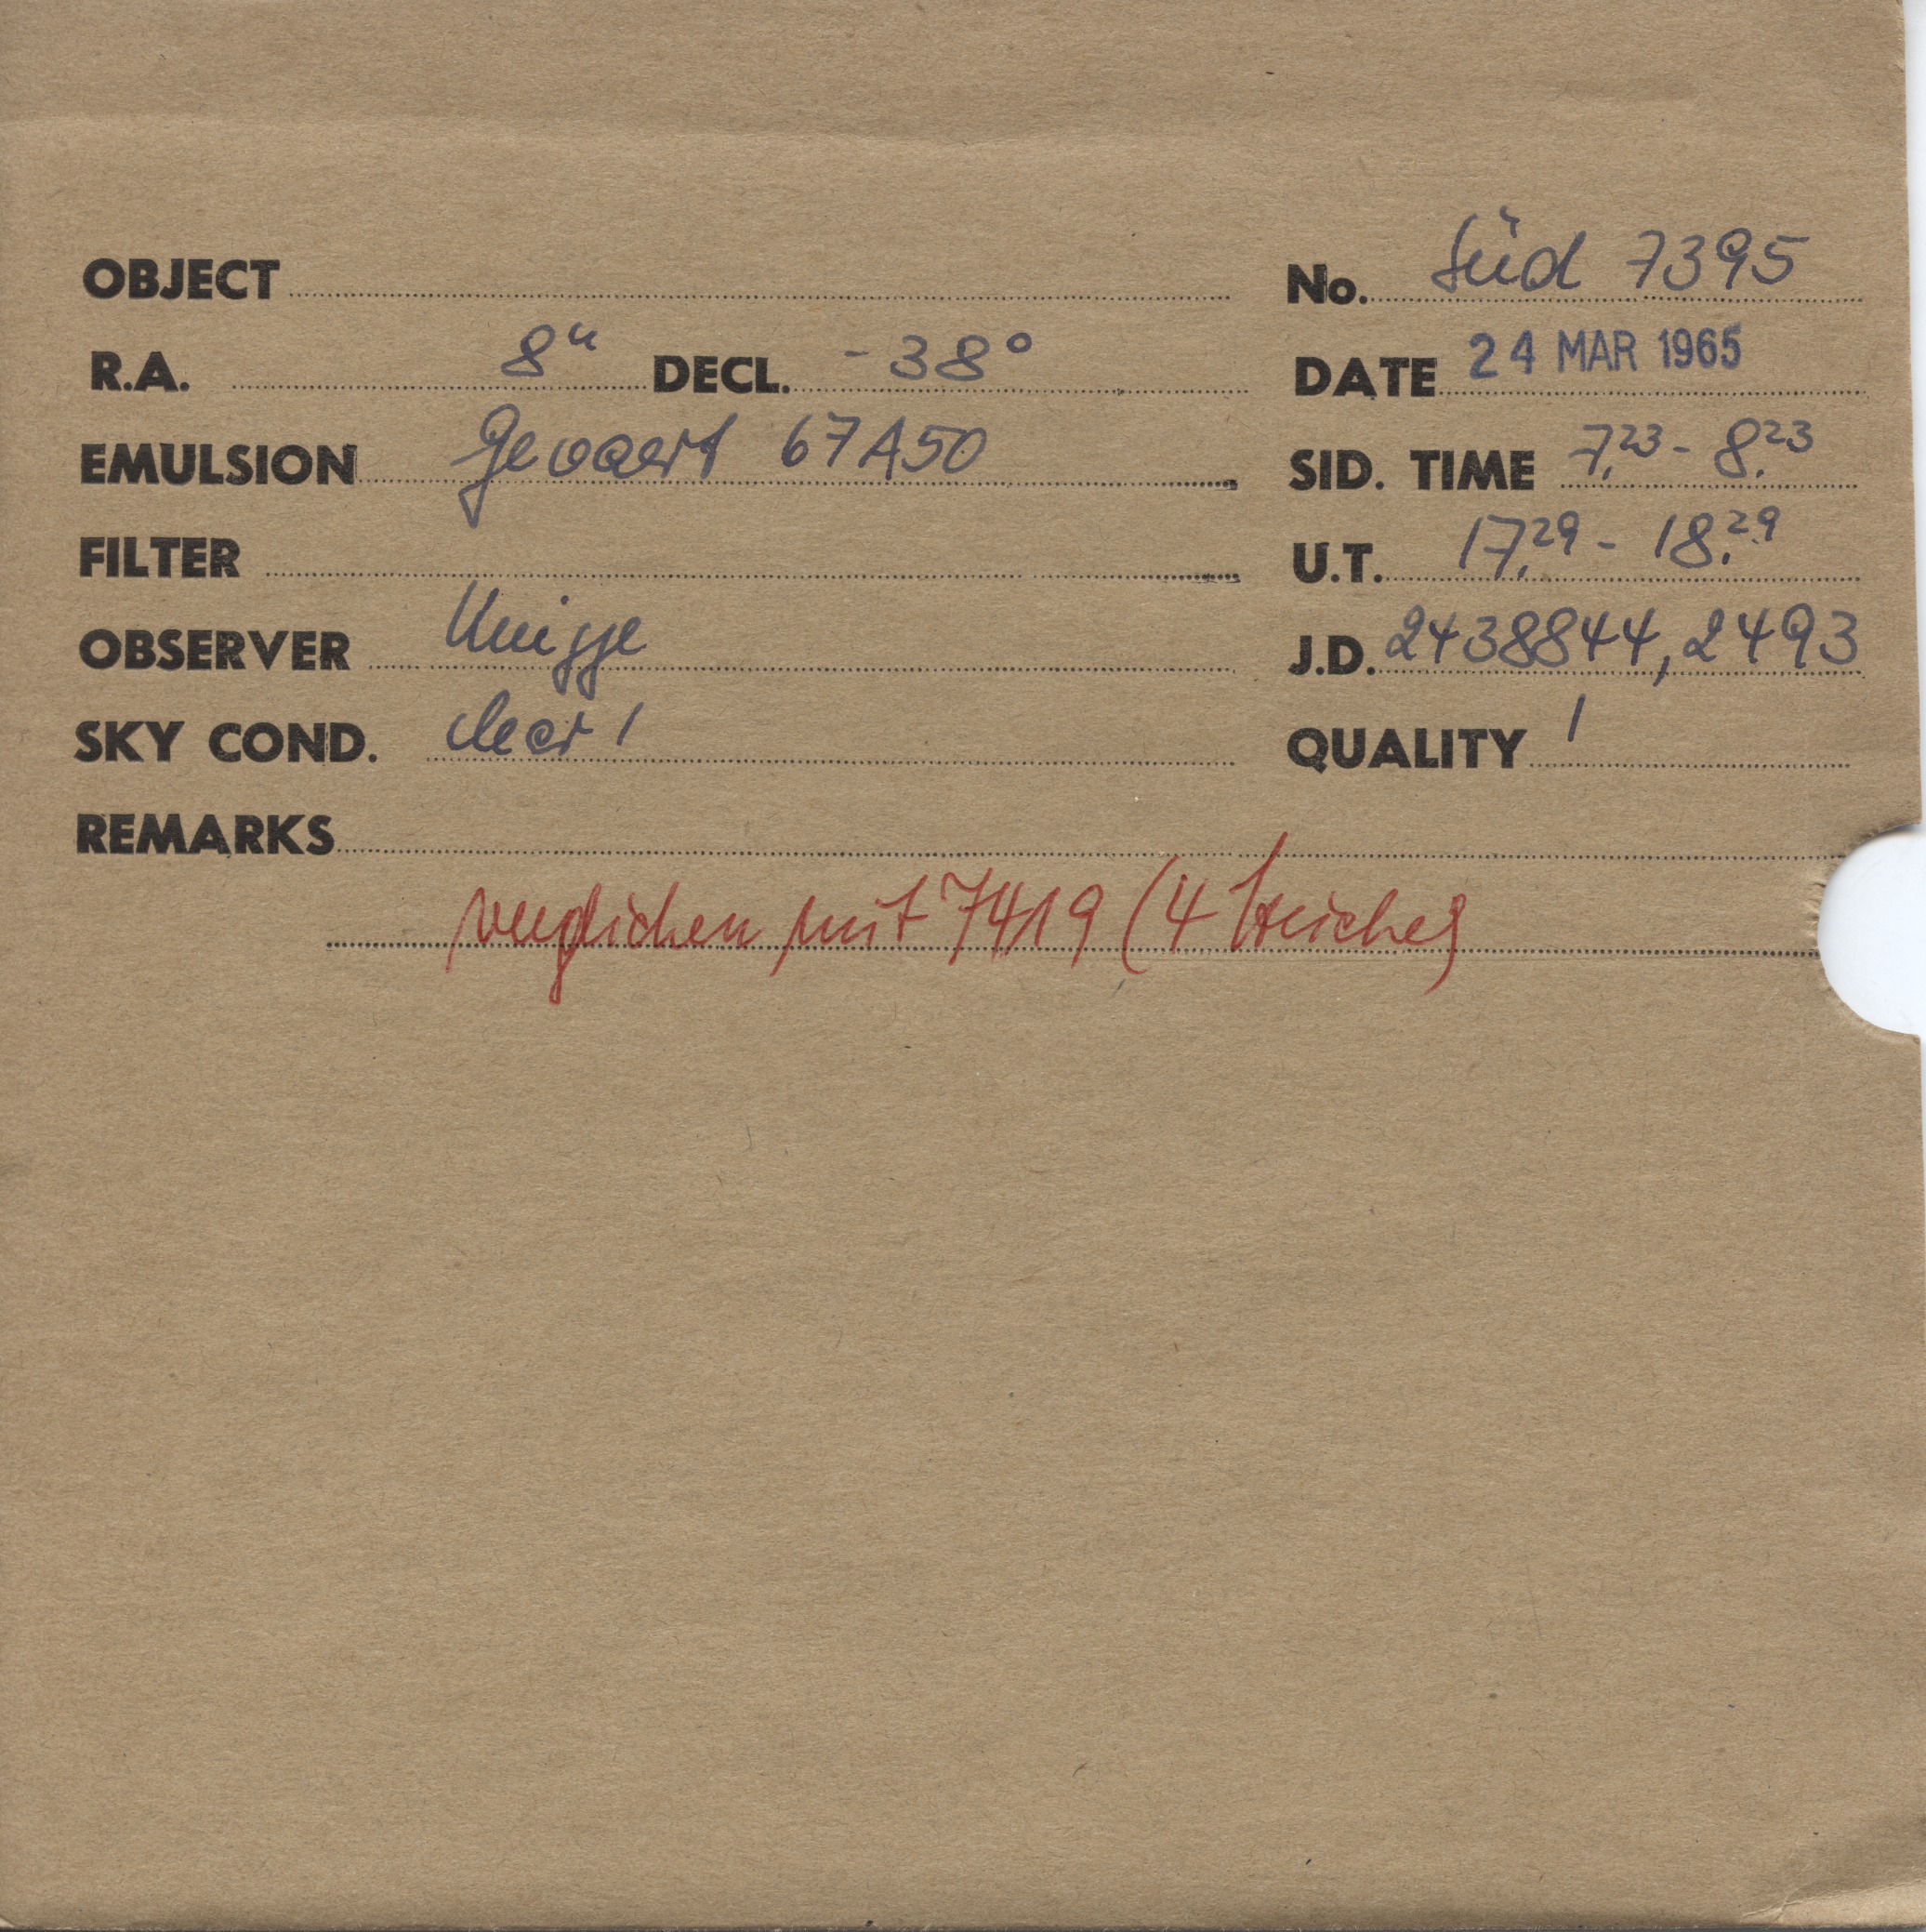 OBJECT No. Süd 7395
R.A. 8ʰ DECL. -38° DATE 24 MAR 1965
EMULSION Gevaert 67A50 SID. TIME 7,23 - 8,23
FILTER U.T. 17,29 - 18,29
OBSERVER Knigge J.D. 2438844,2493
SKY COND. clear 1 QUALITY 1
REMARKS
verglichen mit 7419 (4 Striche)